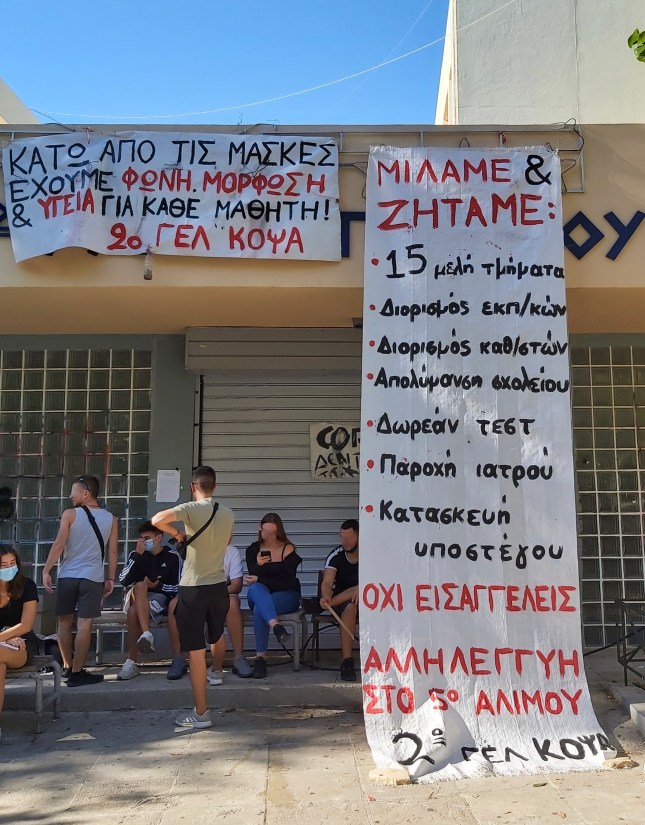 ΚΑΤΩ ΑΠΟ ΤΙΣ ΜΑΣΚΕΣ
ΕΧΟΥΜΕ ΦΩΝΗ. ΜΟΡΦΩΣΗ
& ΥΓΕΙΑ ΓΙΑ ΚΑΘΕ ΜΑΘΗΤΗ!
2ο ΓΕΛ ΚΟΨΑ
ΜΙΛΑΜΕ &
ΖΗΤΑΜΕ:
• 15 μελή τμήματα
• Διορισμός εκπ/κών
• Διορισμός καθ/στών
• Απολύμανση σχολείου
• Δωρεάν τεστ
• Παροχή ιατρού
• Κατασκευή
υποστέγου
ΟΧΙ ΕΙΣΑΓΓΕΛΕΙΣ
ΑΛΛΗΛΕΓΓΥΗ
ΣΤΟ 5ο ΑΛΙΜΟΥ
2ο ΓΕΛ ΚΟΨΑ